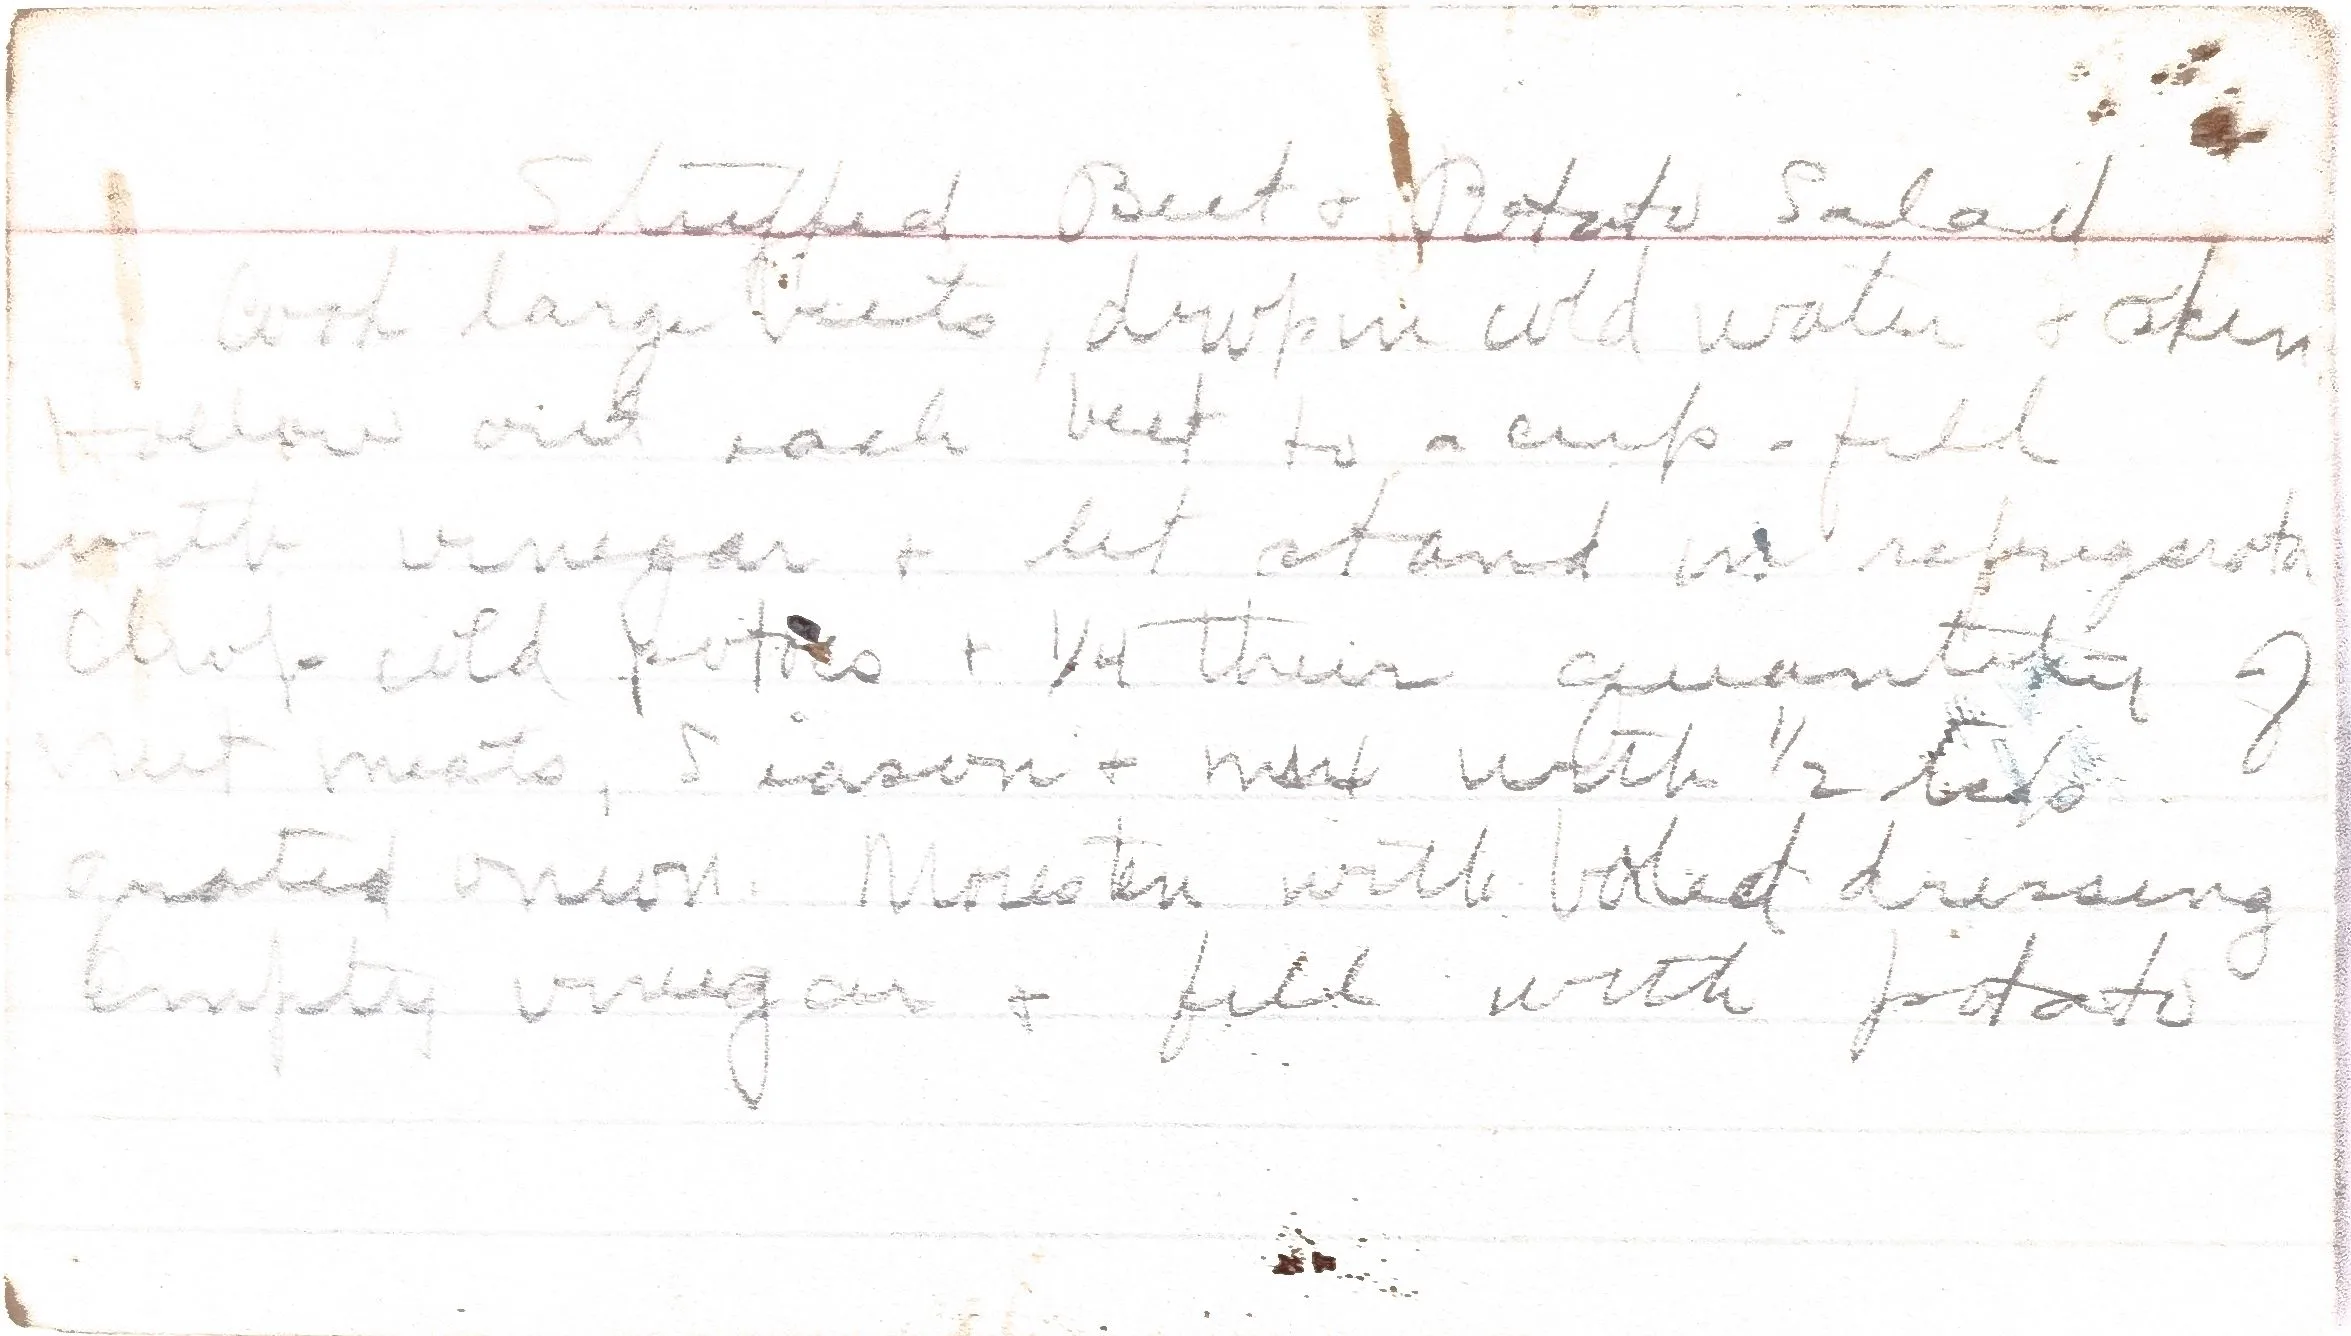 Stuffed Beet & Potato Salad
Cook large beets, drop in cold water & skin
Hollow out each beet to a cup - fill
with vinegar + let stand in refrigerator
Chop cold + 1/4 their quantity of
beet meats, Season + mix with 1/2
grated onion. Moisten with boiled dressing
Empty vinegar + fill with potato